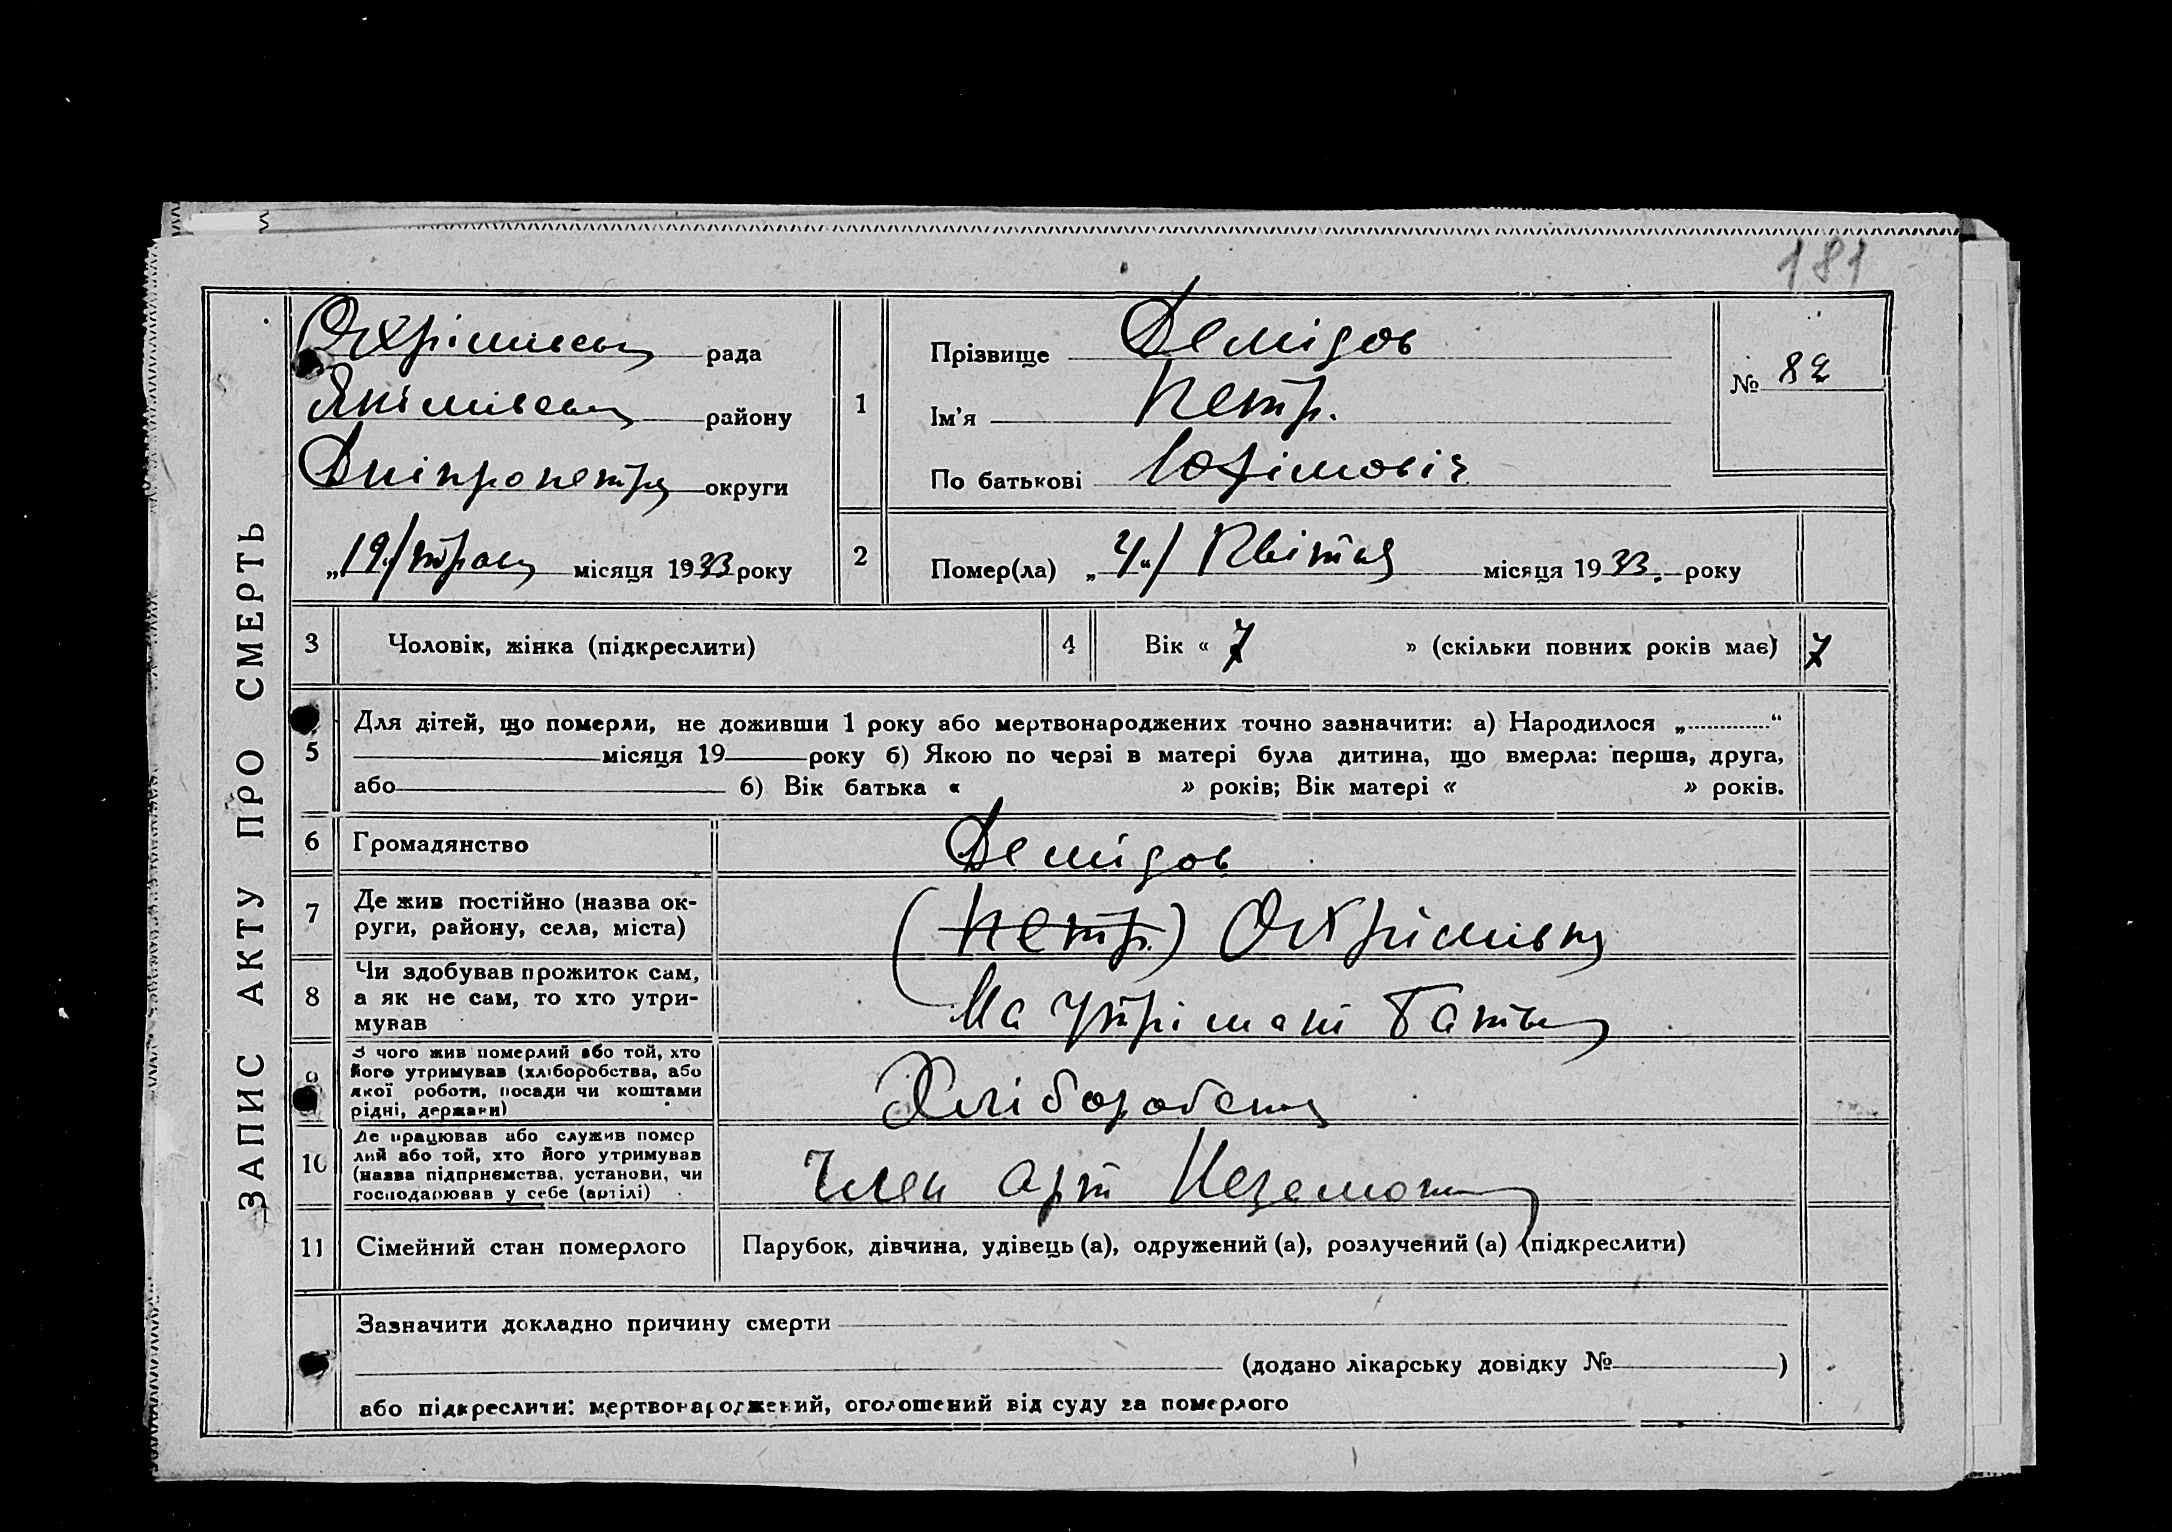 181
ЗАПИС АКТУ ПРО СМЕРТЬ
Охрімівськ рада
Якімівськ району
Дніпропетр округи
„19/ трав місяця 1933 року
1
Прізвище Демідов
Ім'я Петр.
По батькові Юхімовіч
№ 82
2
Помер(ла) „4“/ Квітня місяця 1933. року
3 Чоловік, жінка (підкреслити)
4 Вік « 7 » (скільки повних років має) 7
5 Для дітей, що померли, не доживши 1 року або мертвонароджених точно зазначити: а) Народилося „ “
місяця 19 року б) Якою по черзі в матері була дитина, що вмерла: перша, друга,
або б) Вік батька « » років; Вік матері « » років.
6 Громадянство Демідов
7 Де жив постійно (назва ок-
руги, району, села, міста) (Петр.) Охрімівка
8 Чи здобував прожиток сам,
а як не сам, то хто утри-
мував На утрімані Батьк
9 З чого жив померлий або той, хто
його утримував (хліборобства, або
якої роботи, посади чи коштами
рідні, держави) Хлібороб
10 Де працював або служив помер
лий або той, хто його утримував
(назва підприємства, установи, чи
господарював у себе (артілі) Член арт Незаможн
11 Сімейний стан померлого Парубок, дівчина, удівець (а), одружений (а), розлучений (а) (підкреслити)
Зазначити докладно причину смерти
(додано лікарську довідку № )
або підкреслити: мертвонароджений, оголошений від суду за померлого